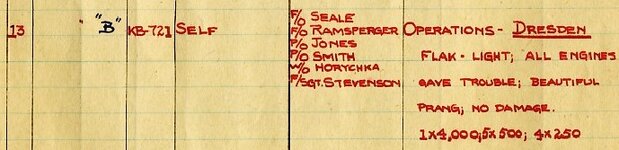 13 "B" KB-721 SELF
F/O SEALE
F/O RAMSPERGER
P/O JONES
P/O SMITH
W/O HORYCHKA
F/SGT. STEVENSON
OPERATIONS - DRESDEN
FLAK - LIGHT; ALL ENGINES
GAVE TROUBLE; BEAUTIFUL
PRANG; NO DAMAGE.
1x4,000; 5x500; 4x250